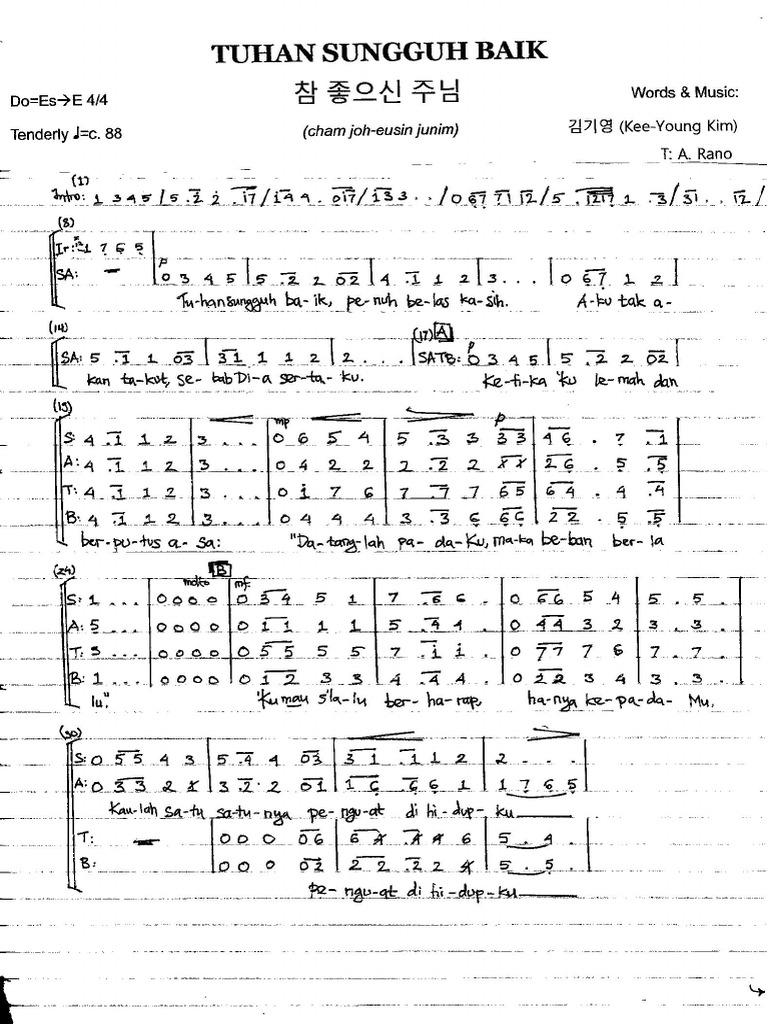 TUHAN SUNGGUH BAIK
참 좋으신 주님
Do=Es→E 4/4
Words & Music:
Tenderly ♩=c. 88
(cham joh-eusin junim)
김기영 (Kee-Young Kim)
T: A. Rano
(1)
Intro: 1 3 4 5 / 5 .2 2 .17 / 144 .017 / 133 . . / 0 67 71 12 / 5 .1217 1 .3 / 31 . . 12 /
(8)
Ir: 1 7 6 5
SA: – p 0 3 4 5 | 5 .2 2 02 | 4 .1 1 2 | 3 . . . | 0 67 1 2 |
Tu-han sungguh ba-ik, pe-nuh be-las ka-sih. A-ku tak a-
(14) (17) A
SA: 5 .1 1 03 | 31 1 1 2 | 2 . . . | SATB: p 0 3 4 5 | 5 .2 2 02
kan ta-kut, se-bab Di-a ser-ta-ku. Ke-ti-ka 'ku le-mah dan
(19)
mp p
S: 4 .1 1 2 | 3 . . . | 0 6 5 4 | 5 .3 3 33 | 46 . 7 .1
A: 4 .1 1 2 | 3 . . . | 0 4 2 2 | 2 .2 2 | 26 . 5 .5
T: 4 .1 1 2 | 3 . . . | 0 1 7 6 | 7 .7 7 65 | 64 . 4 .4
B: 4 .1 1 2 | 3 . . . | 0 4 4 4 | 3 .3 6 66 | 22 . 5 .5
ber-pu-tus a-sa: "Da-tang-lah pa-da-Ku, ma-ka be-ban ber-la
(24) molto B mf
S: 1 . . . | 0 0 0 0 | 0 34 5 1 | 7 .6 6 . | 0 66 5 4 | 5 . 5 .
A: 5 . . . | 0 0 0 0 | 0 11 1 1 | 5 .4 4 . | 0 44 3 2 | 3 . 3 .
T: 3 . . . | 0 0 0 0 | 0 55 5 5 | 7 .1 1 . | 0 77 7 6 | 7 . 7 .
B: 1 . . . | 0 0 0 0 | 0 12 3 3 | 4 .4 4 . | 0 22 3 4 | 3 . 3 .
lu." 'Ku mau s'la-lu ber-ha-rap, ha-nya ke-pa-da-Mu.
(30)
S: 0 55 4 3 | 5 .4 4 03 | 31 .1 1 2 | 2 . . .
A: 0 33 2 | 3 .2 2 01 | 16 .6 6 1 | 1 7 6 5
Kau-lah sa-tu sa-tu-nya pe-ngu-at di hi-dup-ku
T: – | 0 0 0 06 | 6 6 | 5 . 4 .
B: 0 0 0 02 | 22 .2 2 | 5 . 5 .
pe-ngu-at di hi-dup-ku